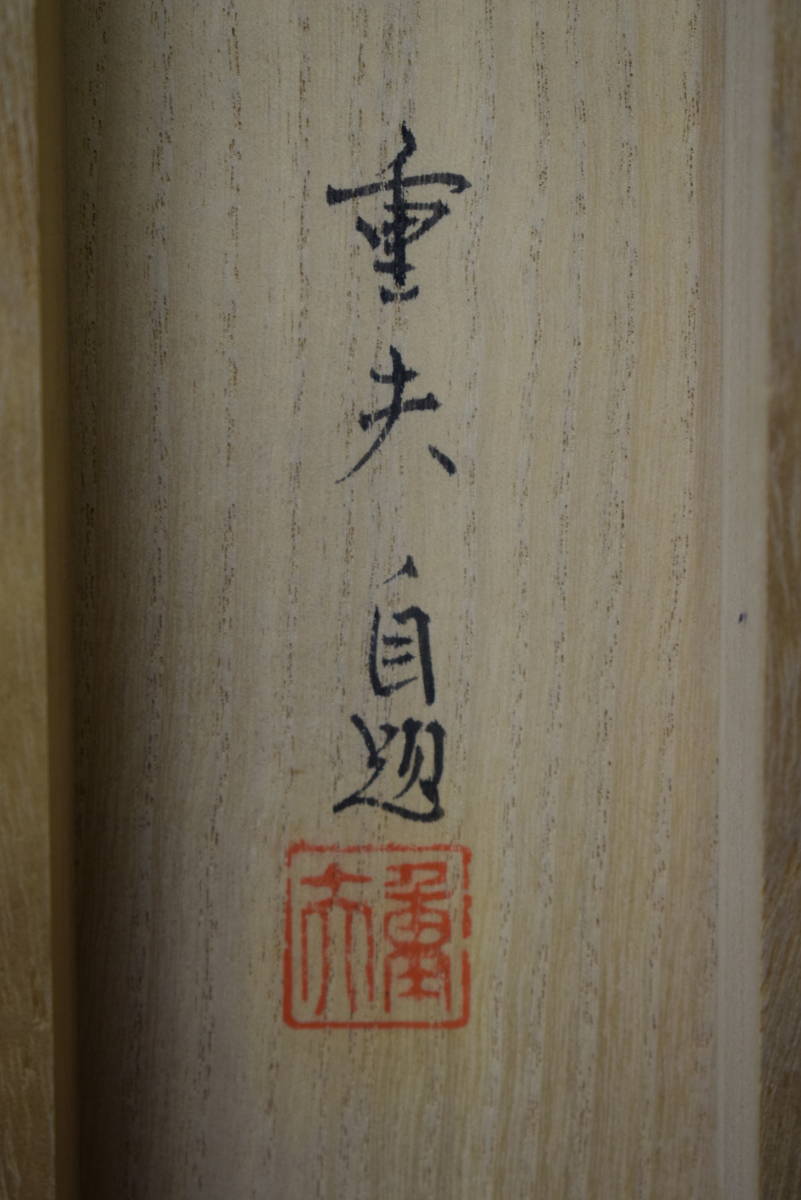 重夫自題
重夫